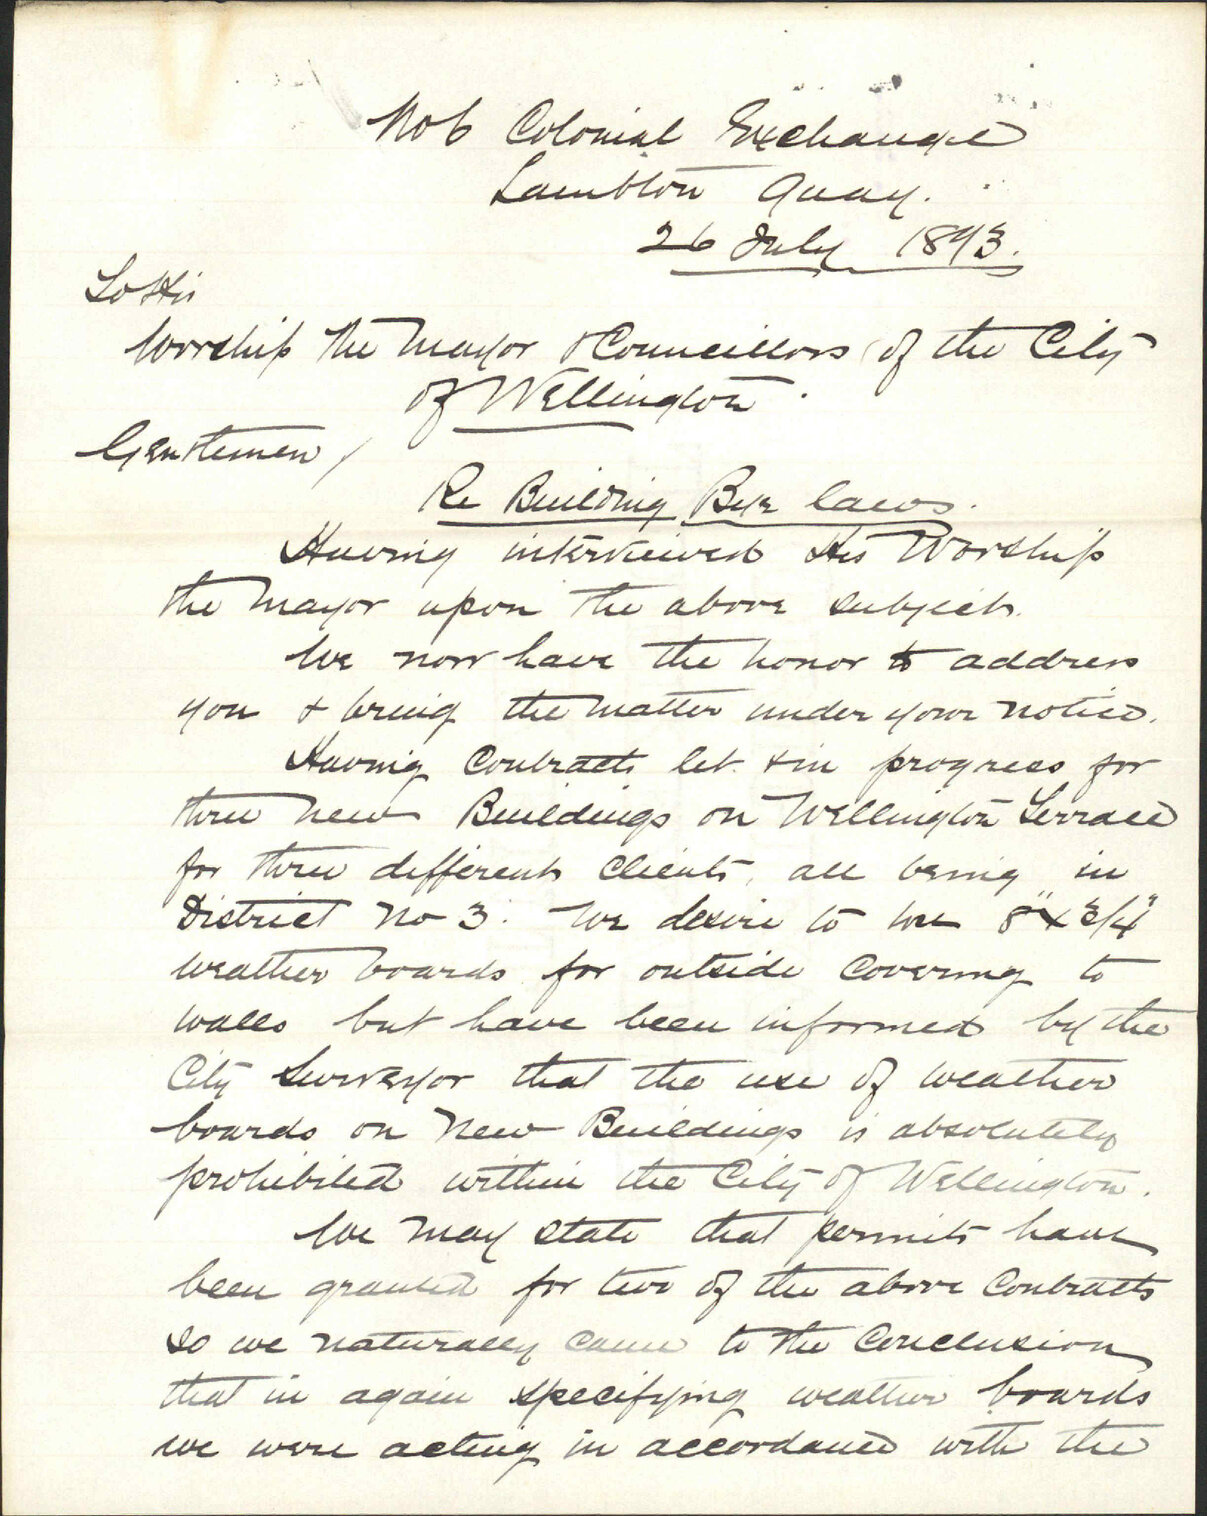 No 6 Colonial Exchange
Lambton Quay.
26 July 1893.
To His
Worship the Mayor & Councillors of the City
of Wellington.
Gentlemen /
Re Building Bye laws.
Having interviewed His Worship
the Mayor upon the above subject.
We now have the honor to address
you & bring the matter under your notice.
Having Contracts let & in progress for
three new Buildings on Wellington Terrace
for three different Clients, all being in
District No 3. We desire to use 8" x 3/4"
weather boards for outside Covering to
walls but have been informed by the
City Surveyor that the use of weather
boards on New Buildings is absolutely
prohibited within the City of Wellington.
We May state that permits have
been granted for two of the above Contracts
so we naturally came to the Conclusion
that in again specifying weather boards
we were acting in accordance with the